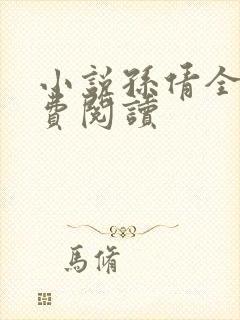 小說孫倩全
費閱讀
馬脩